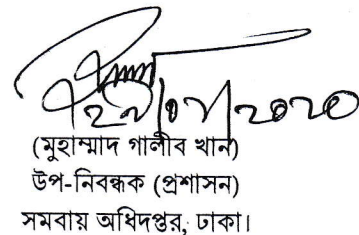 (মুহাম্মাদ গালীব খান)
উপ-নিবন্ধক (প্রশাসন)
সমবায় অধিদপ্তর, ঢাকা।